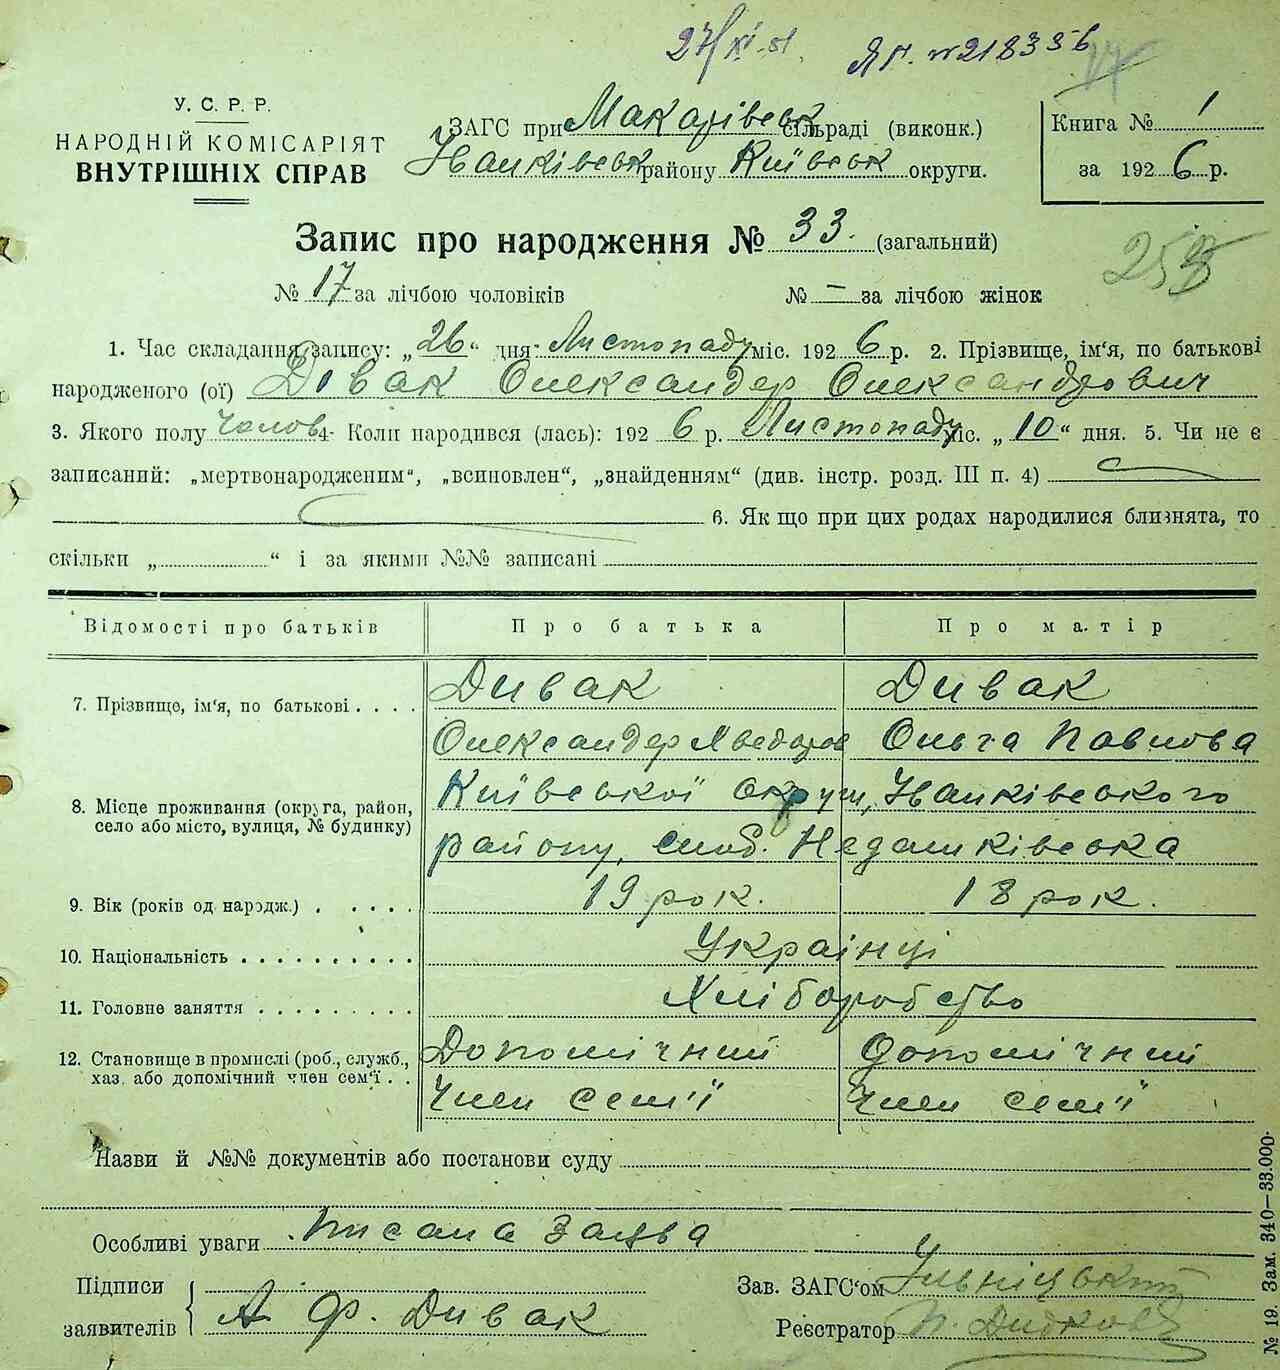 27/XI.51. ЯГ. №218336
У. С. Р. Р.
НАРОДНІЙ КОМІСАРІЯТ
ВНУТРІШНІХ СПРАВ
ЗАГС при Макарівськ сільраді (виконк.)
Іванківськ району Київськ округи.
Книга № 1
за 1926 р.
Запис про народження № 33. (загальний)
№ 17 за лічбою чоловіків № — за лічбою жінок
253
1. Час складання запису: „26“ дня Листопаду міс. 1926 р. 2. Прізвище, ім'я, по батькові
народженого (ої) Дівак Олександер Олександрович
3. Якого полу чолов 4. Коли народився (лась): 1926 р. Листопаду міс. „10“ дня. 5. Чи не є
записаний: „мертвонародженим“, „всиновлен“, „знайденням“ (див. інстр. розд. III п. 4)
6. Як що при цих родах народилися близнята, то
скільки „ “ і за якими №№ записані
Відомості про батьків Про батька Про матір
7. Прізвище, ім'я, по батькові . . . . Дивак Дивак
Олександер Хведоров Ольга Павлова
8. Місце проживання (округа, район, село або місто, вулиця, № будинку) Київської округи, Іванківського
району, слоб. Недашківська
9. Вік (років од народж.) . . . . . 19 рок. 18 рок.
10. Національність . . . . . . . . . . Українці
11. Головне заняття . . . . . . . . . Хліборобство
12. Становище в промислі (роб., служб., Допомічний допомічний
хаз. або допомічний член сем'ї . . член сем'ї член сем'ї
Назви й №№ документів або постанови суду
Особливі уваги
Підписи
заявителів А Ф. Дивак
Зав. ЗАГС'ом
Реєстратор
№ 19. Зам. 340—33.000.